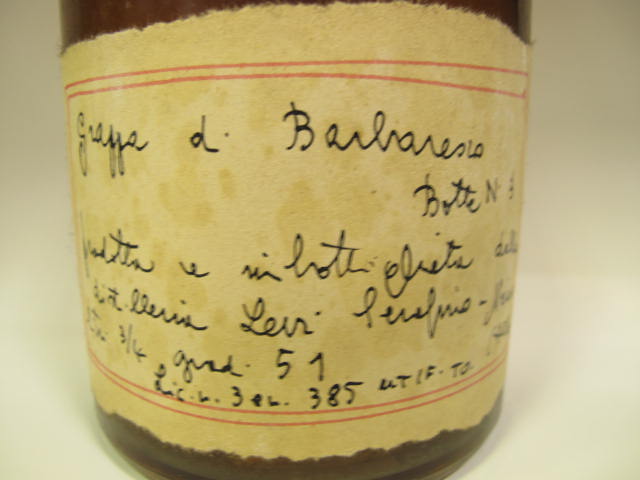 Grappa di Barbaresco
Botte N. 3
prodotta e imbottigliata dalla
distilleria Levi Serafino -
litri 3/4 grad. 51
Lic. n. 3 e n. 385 UTIF. TO.